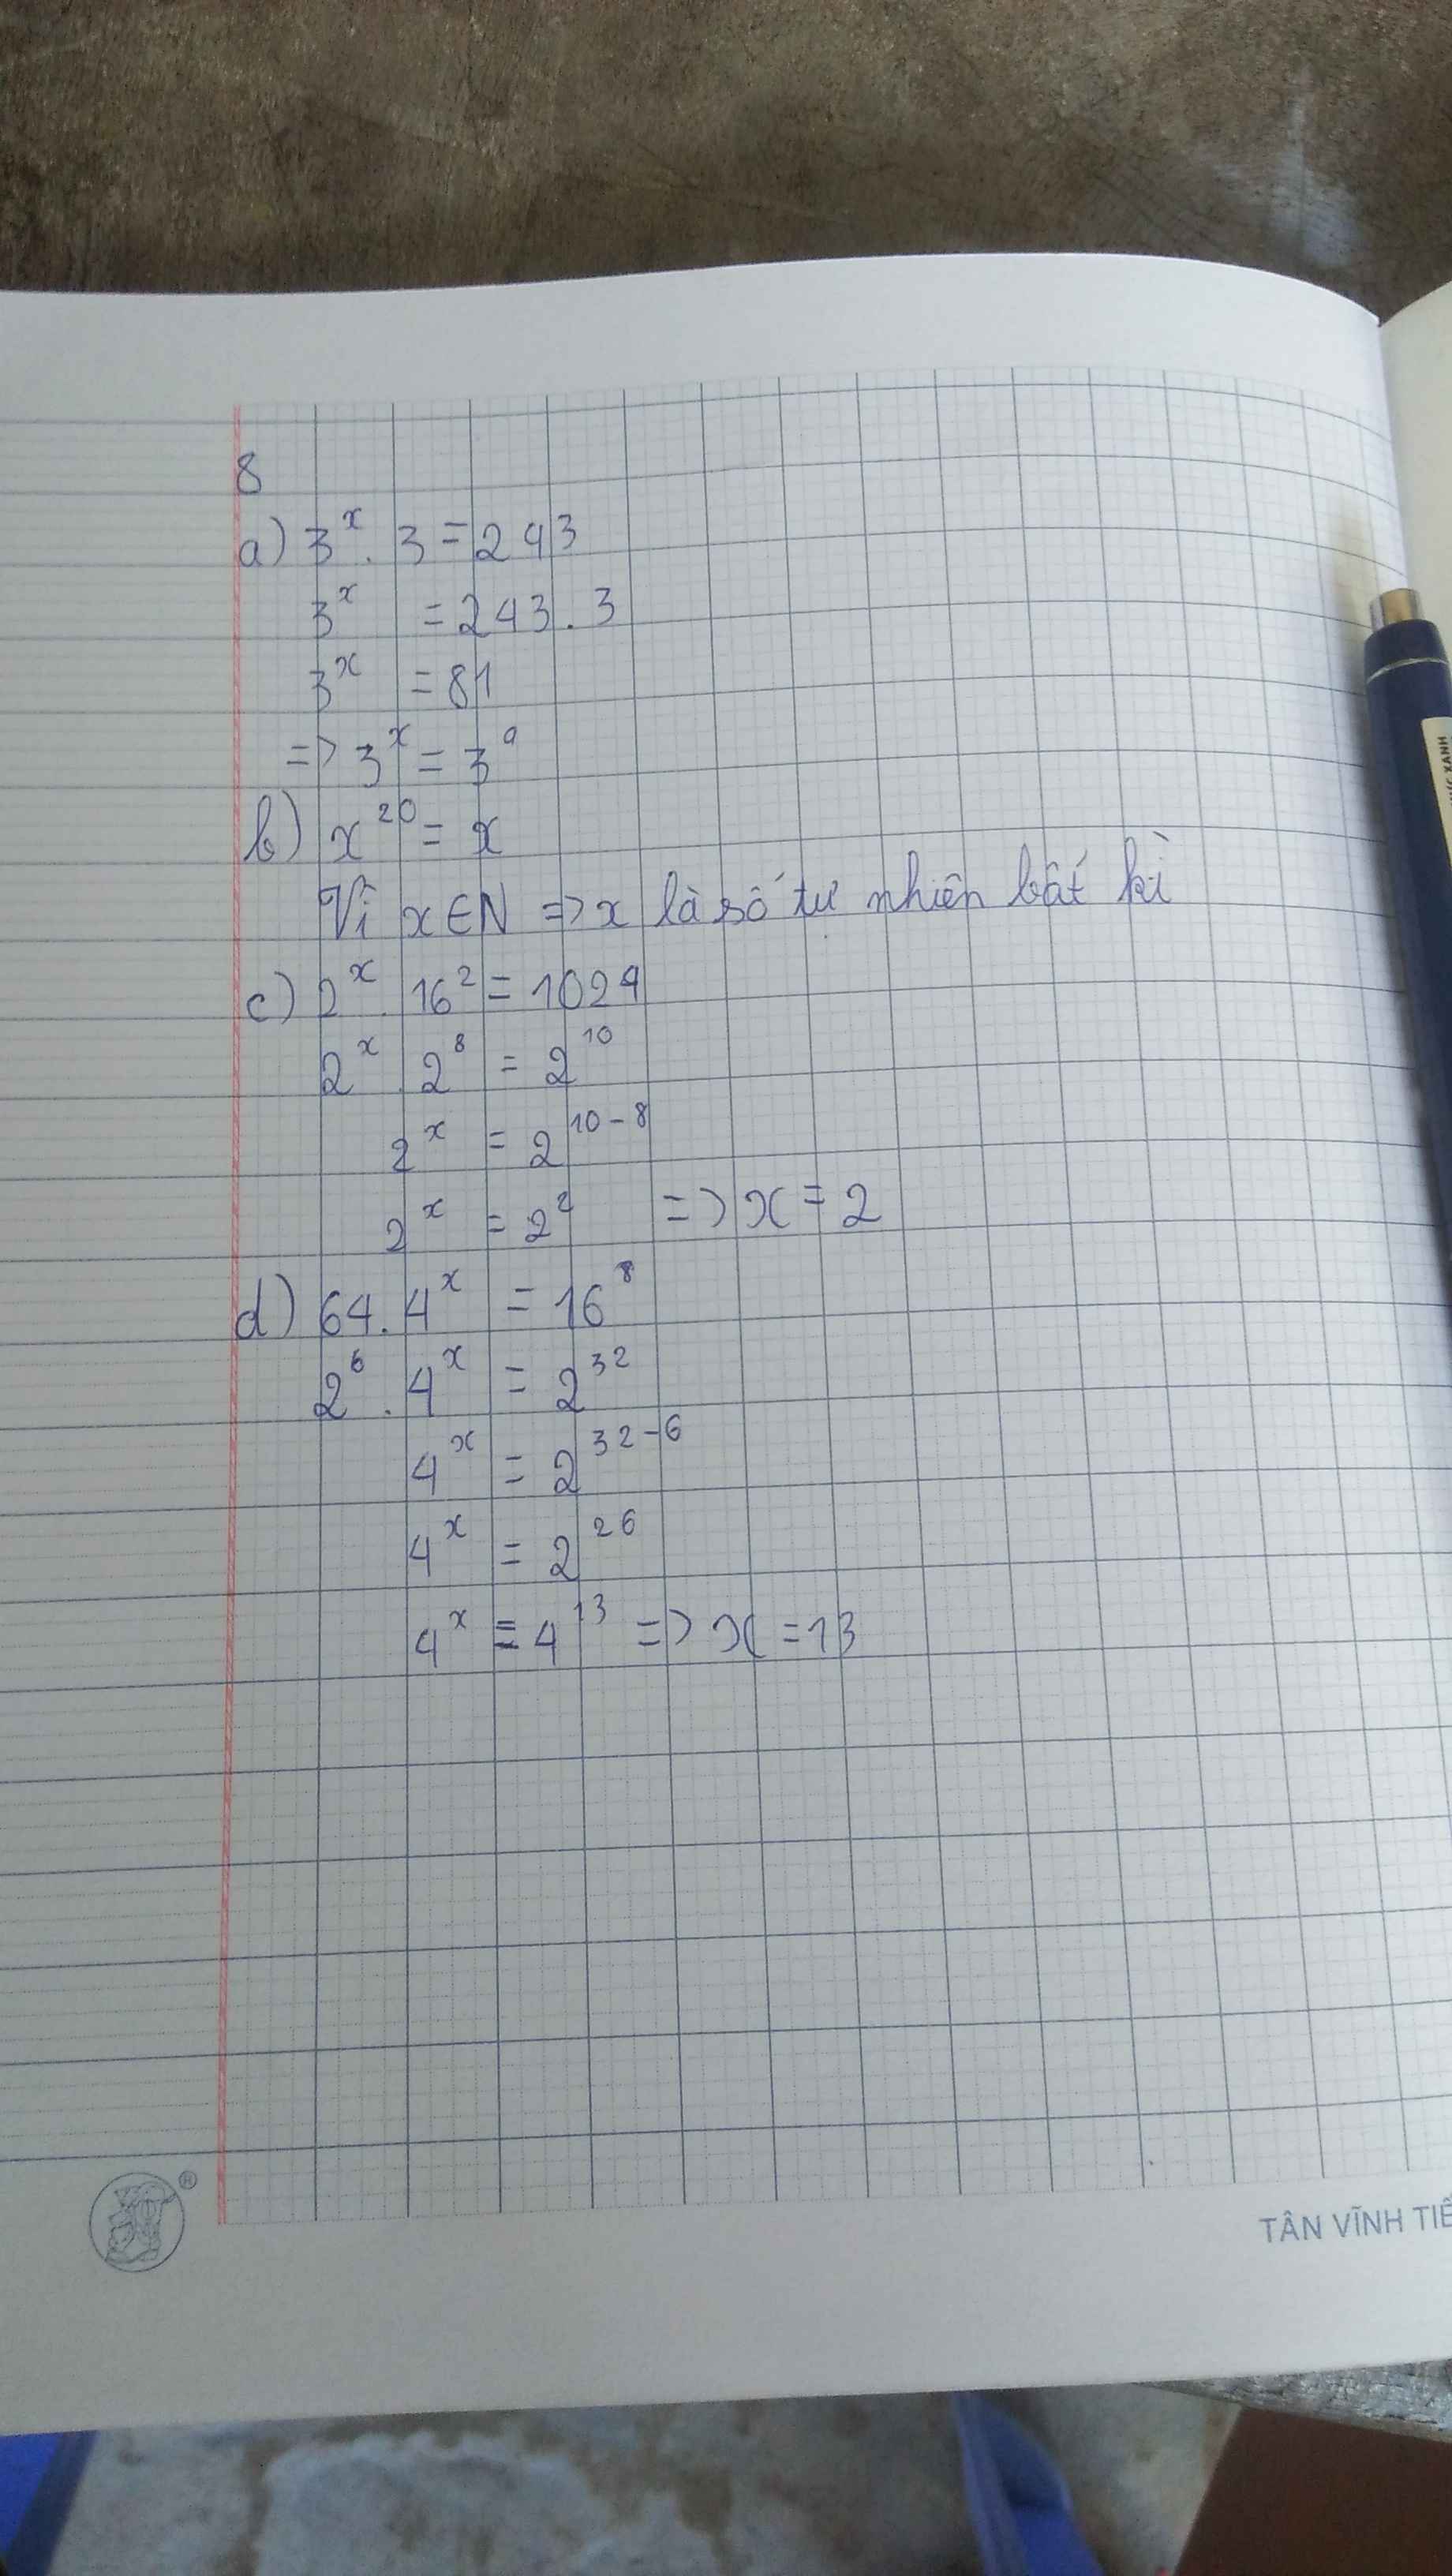 8
a) 3^x . 3 = 243
3^x = 243 . 3
3^x = 81
=> 3^x = 3^9
b) x^20 = x
Vì x ∈ N => x là số tự nhiên bất kì
c) 2^x . 16^2 = 1024
2^x . 2^8 = 2^10
2^x = 2^10-8
2^x = 2^2 => x = 2
d) 64 . 4^x = 16^8
2^6 . 4^x = 2^32
4^x = 2^32-6
4^x = 2^26
4^x = 4^13 => x = 13
®
TÂN VĨNH TIẾ
XANH